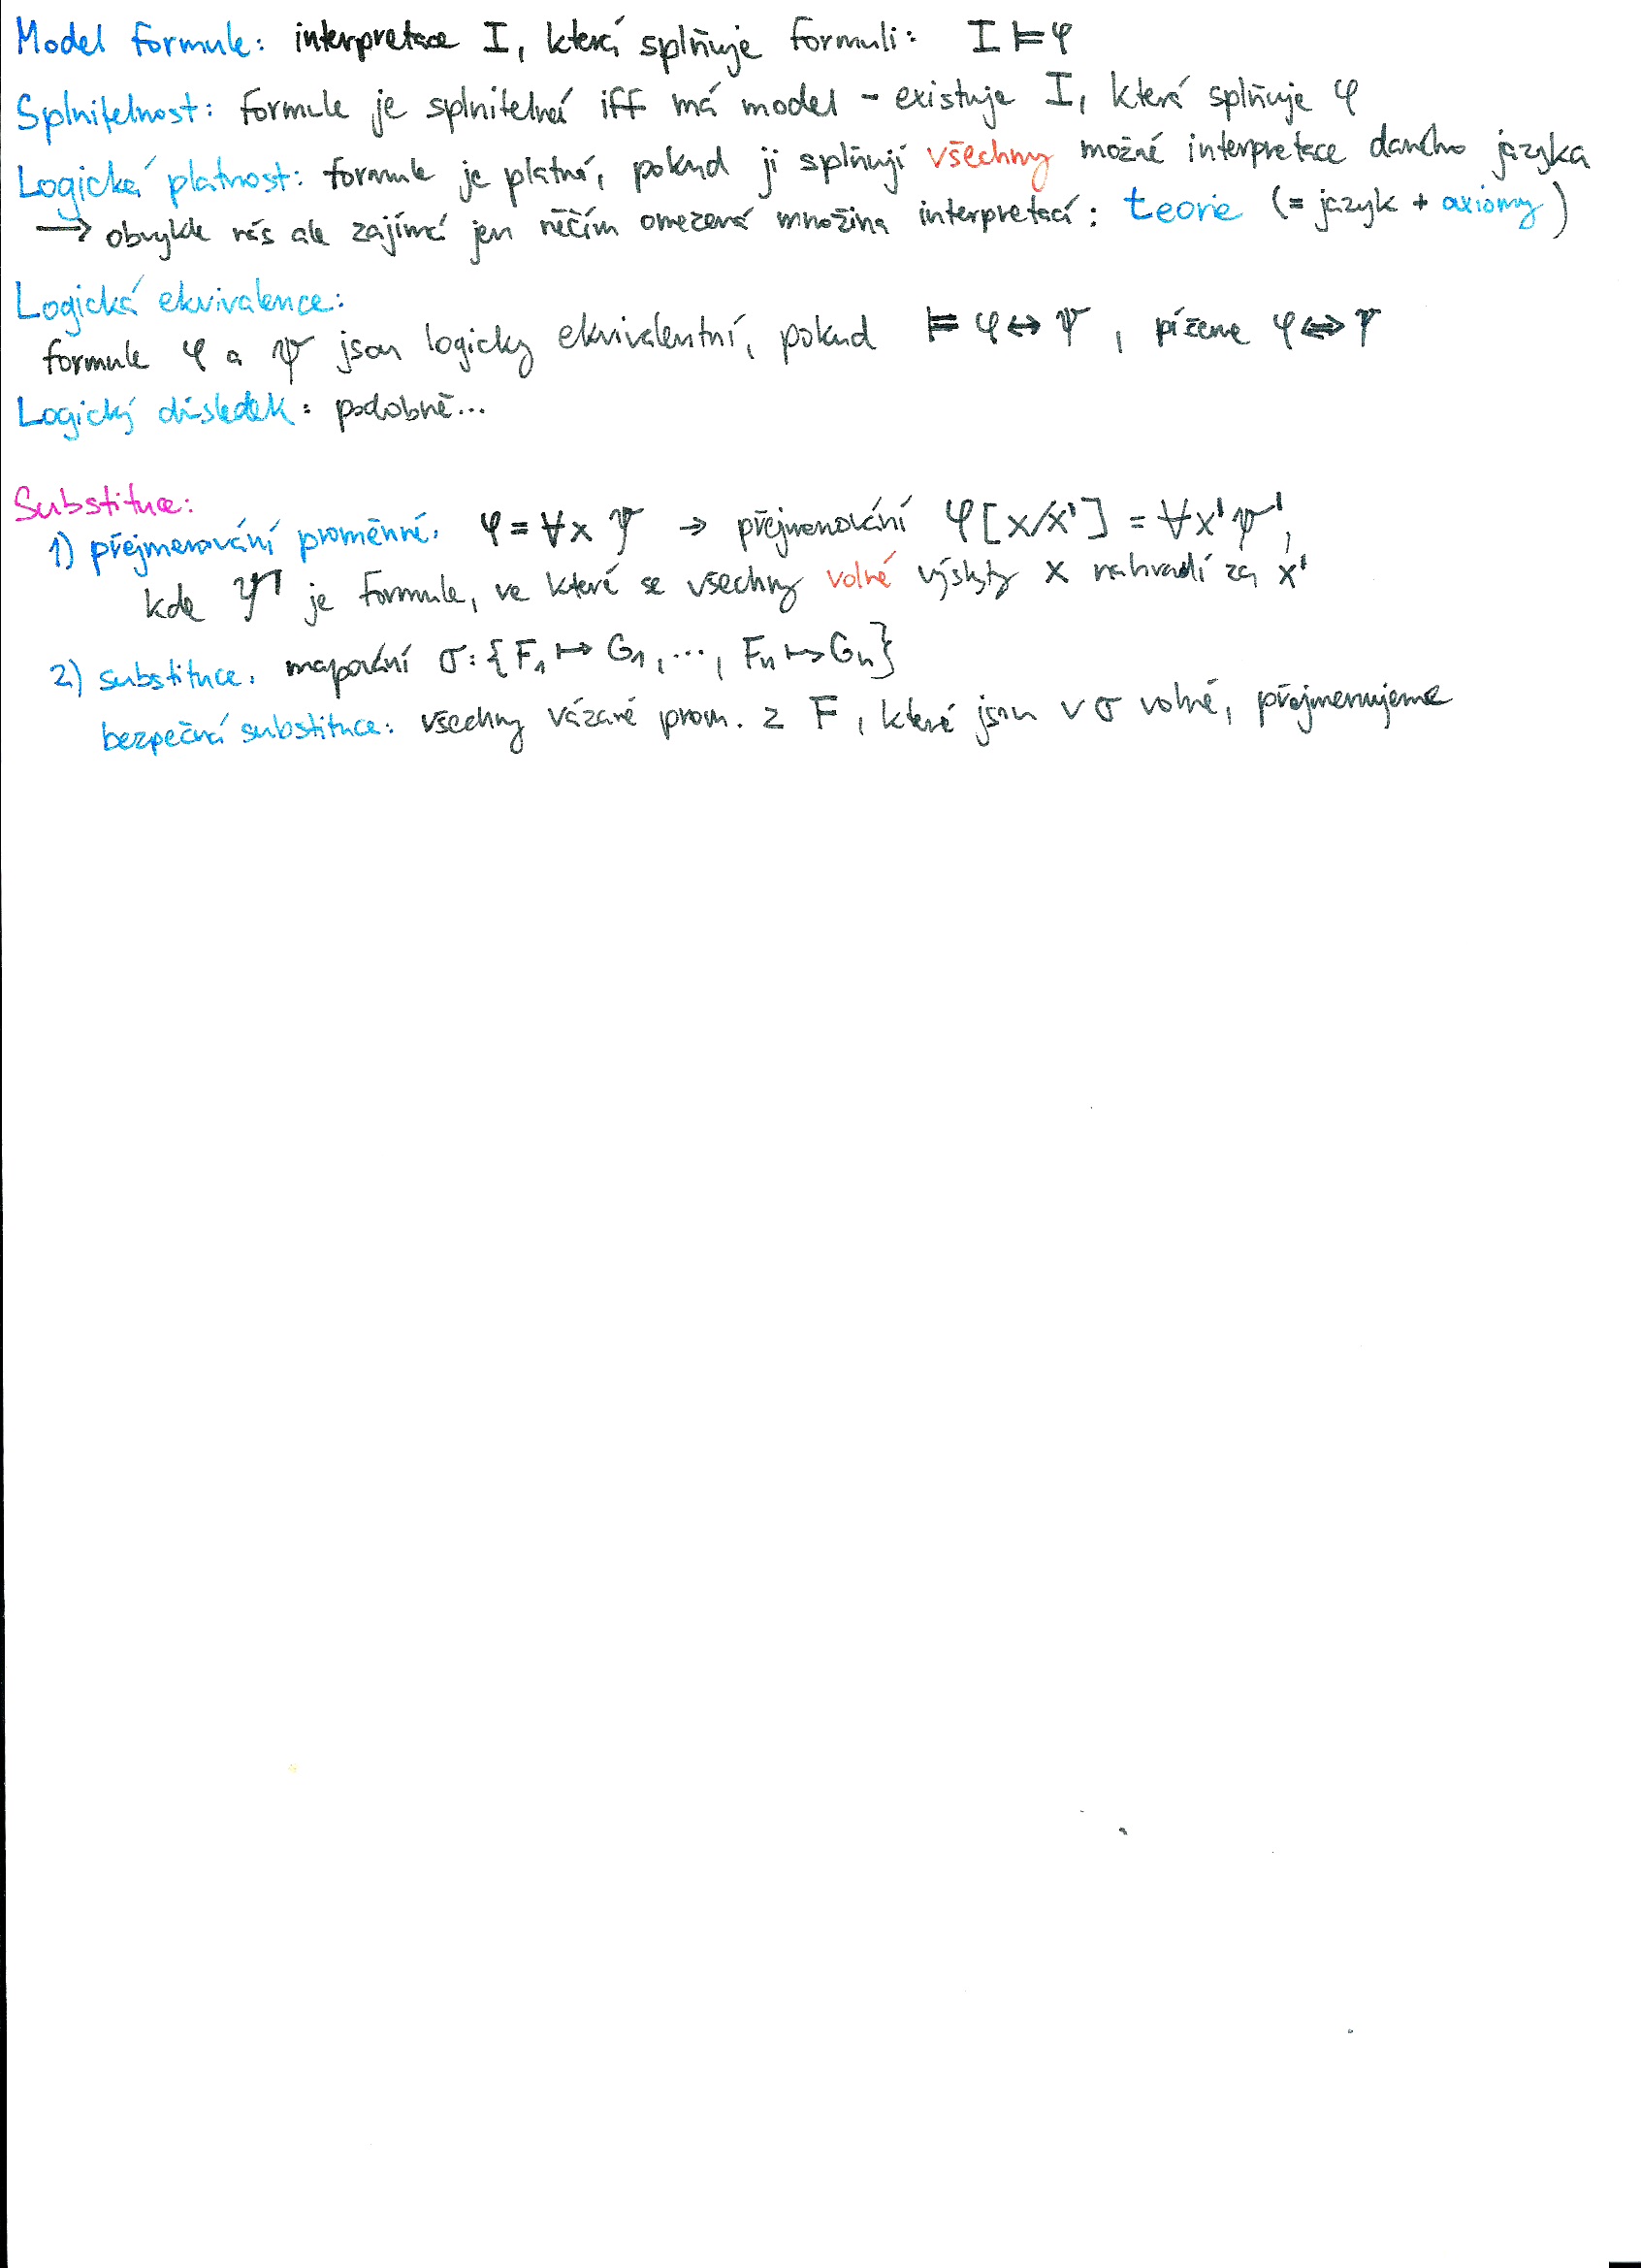 Model formule: interpretace I, která splňuje formuli: I ⊨ φ
Splnitelnost: formule je splnitelná iff má model – existuje I, která splňuje φ
Logická platnost: formule je platná, pokud ji splňují všechny možné interpretace daného jazyka
→ obvykle nás ale zajímá jen něčím omezená množina interpretací: teorie (= jazyk + axiomy)
Logická ekvivalence:
formule φ a ψ jsou logicky ekvivalentní, pokud ⊨ φ ↔ ψ, píšeme φ ⇔ ψ
Logický důsledek: podobně...
Substituce:
1) přejmenování proměnné. φ = ∀x ψ → přejmenování φ[x/x'] = ∀x' ψ',
kde ψ' je formule, ve které se všechny volné výskyty x nahradí za x'
2) substituce. mapování σ: {F₁ ↦ G₁, ..., Fₙ ↦ Gₙ}
bezpečná substituce: všechny vázané prom. z F, které jsou v σ volné, přejmenujeme